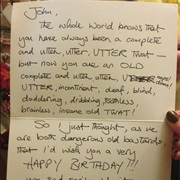 John,
The whole world knows that
you have always been a complete
and utter, utter, UTTER TWAT —
but now you are an OLD
complete and utter, utter,
UTTER, incontinent, deaf, blind,
doddering, dribbling, toothless,
brainless, insane old TWAT!
So I just thought, as we
are both dangerous old bastards
that I'd wish you a very
HAPPY BIRTHDAY!!!